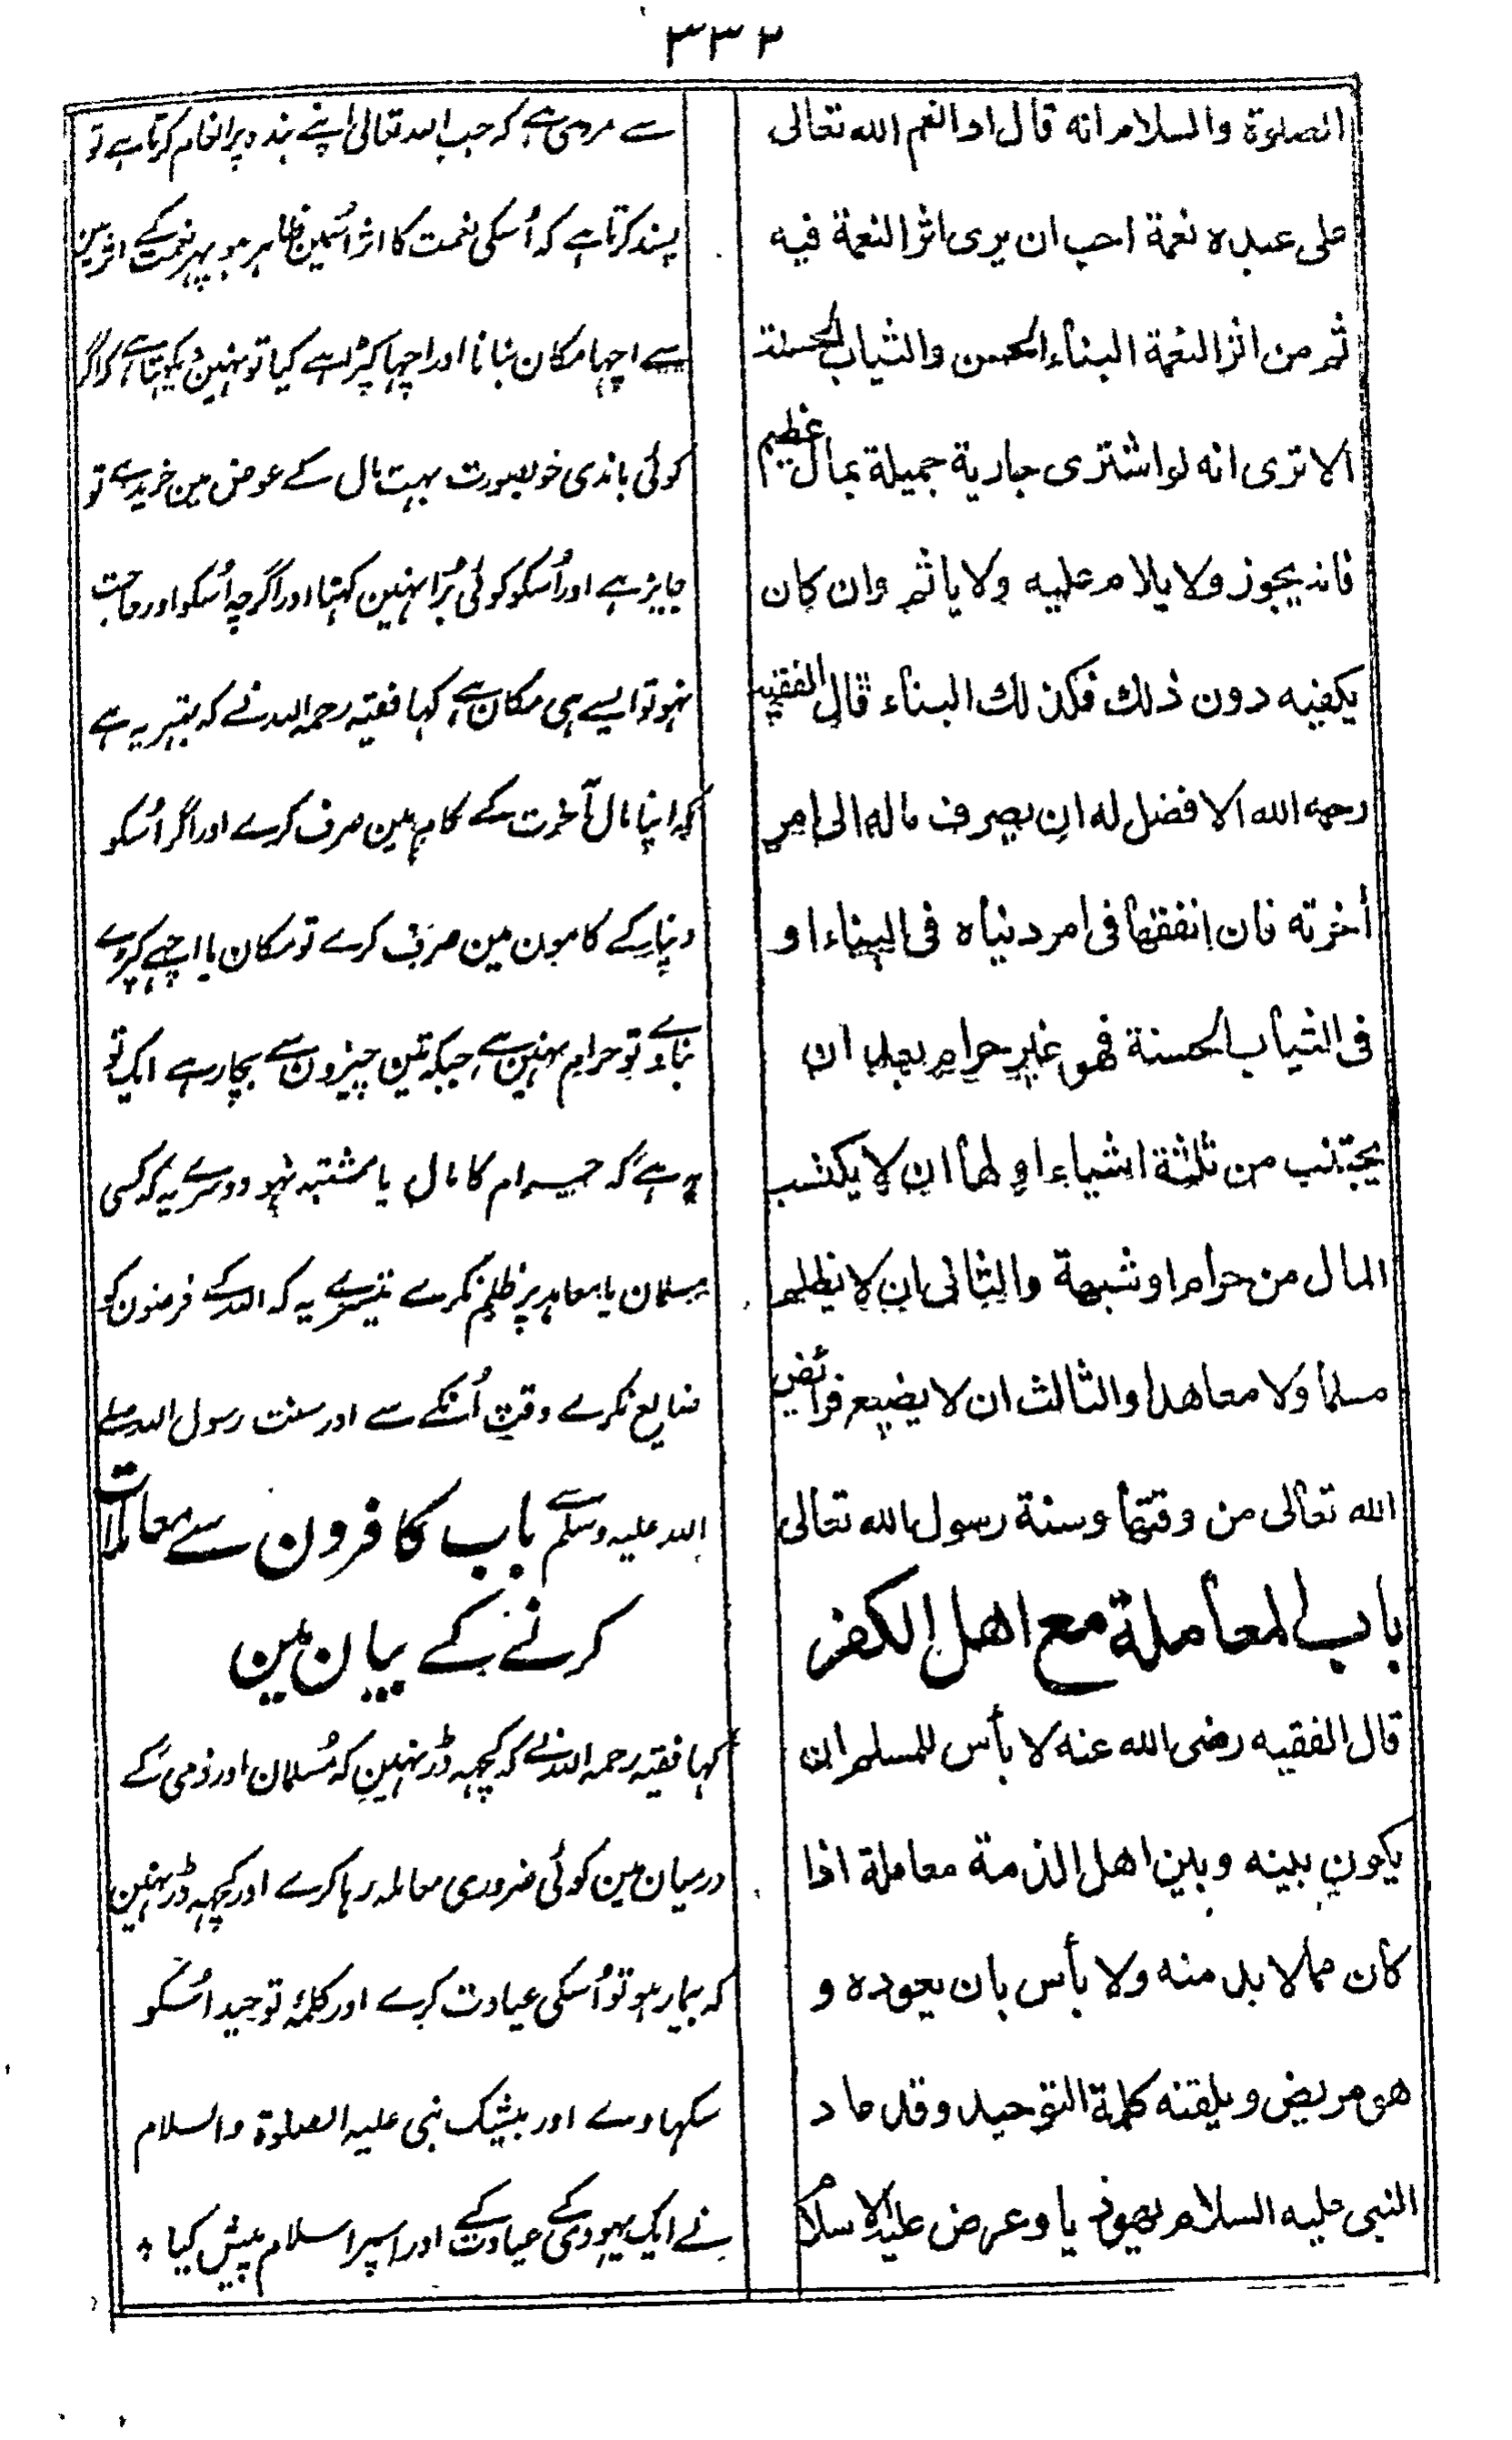 ۳۳۲
الصلوة والسلام انه قال اذا انعم الله تعالى
على عبده نعمة احب ان يرى اثر النعمة فيه
ثم من اثر النعمة البناء الحسن والثياب الحسنة
الا ترى انه لو اشترى جارية جميلة بمال عظيم
فانه يجوز ولا يلام عليه ولا ياثم وان كان
يكفيه دون ذلك فكذلك البناء قال الفقيه
رحمه الله الافضل له ان يصرف ماله الى امر
أخرته فان انفقها فى امر دنياه فى البناء او
فى الثياب الحسنة فهو غير حرام بعد ان
يجتنب من ثلثة اشياء اولها ان لا يكتسب
المال من حرام او شبهة والثانى ان لا يظلم
مسلما ولا معاهدا والثالث ان لا يضيع فرائض
الله تعالى من وقتها وسنة رسول الله تعالى
باب المعاملة مع اهل الكفر
قال الفقيه رضى الله عنه لا بأس للمسلم ان
يكون بينه وبين اهل الذمة معاملة اذا
كان مما لا بد منه ولا بأس بان يعوده و
هو مريض ويلقنه كلمة التوحيد وقد عاد
النبى عليه السلام يهوديا وعرض عليه الاسلام
سے مروی ہے کہ جب اللہ تعالی اپنے بندہ پر انعام کرتا ہے تو
پسند کرتا ہے کہ اُسکی نعمت کا اثر اُسمین ظاہر ہو پہر نعمت کے اثر مین
سے اچہا مکان بنانا اور اچہا کپڑا ہے کیا تو نہین دیکہتا ہے کہ اگر
کوئی باندی خوبصورت بہت مال کے عوض مین خریدے تو
جایز ہے اور اُسکو کوئی بُرا نہین کہتا اور اگرچہ اُسکو اور حاجت
نہو تو ایسے ہی مکان ہے کہا فقیہ رحمہ اللہ نے کہ بہتر یہ ہے
کہ اپنا مال آخرت کے کام مین صرف کرے اور اگر اُسکو
دنیا کے کامون مین صرف کرے تو مکان یا اچہے کپڑے
بناوے تو حرام نہین ہے جبکہ تین چیزون سے بچا رہے ایک تو
یہ ہے کہ حرام کا مال یا مشتبہ نہو دوسرے یہ کہ کسی
مسلمان یا معاہد پر ظلم نکرے تیسرے یہ کہ اللہ کے فرضون کو
ضایع نکرے وقت اُنکے سے اور سنت رسول اللہ صلے
اللہ علیہ وسلم سے باب کافرون سے معاملات
کرنے کے بیان مین
کہا فقیہ رحمہ اللہ نے کہ کچہہ ڈر نہین کہ مُسلمان اور ذمی کے
درمیان مین کوئی ضروری معاملہ رہا کرے اور کچہہ ڈر نہین
کہ بیمار ہو تو اُسکی عیادت کرے اور کلمۂ توحید اُسکو
سکہاوے اور بیشک نبی علیہ الصلوۃ والسلام
نے ایک یہودی کے عیادت کے اور اسپر اسلام پیش کیا